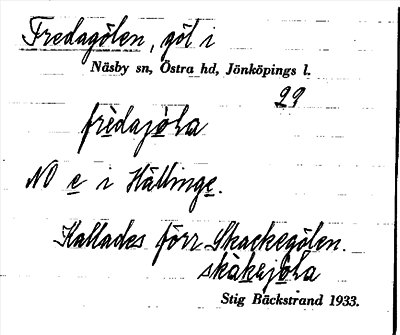 Fredagölen, göl i
Näsby sn, Östra hd, Jönköpings l.
29
frèdajöla
NO e i Hällinge.
Kallades förr Skackegölen.
skàkajöla
Stig Bäckstrand 1933.